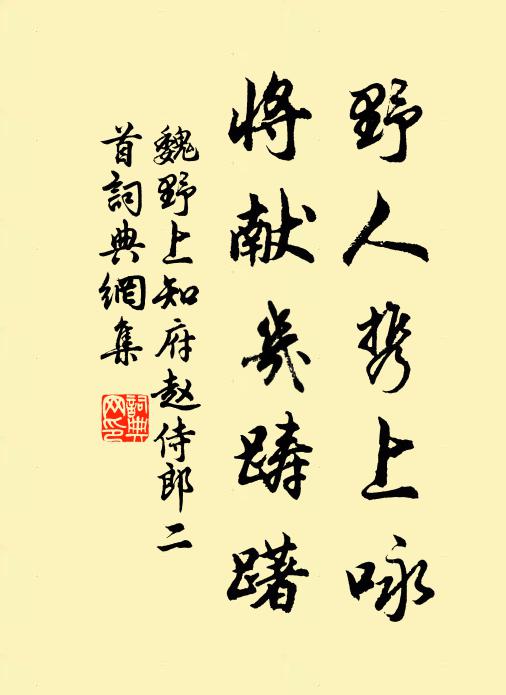 野人携上咏
将献几踌躇
魏野上知府赵侍郎二
首詞典網集
詞典网印